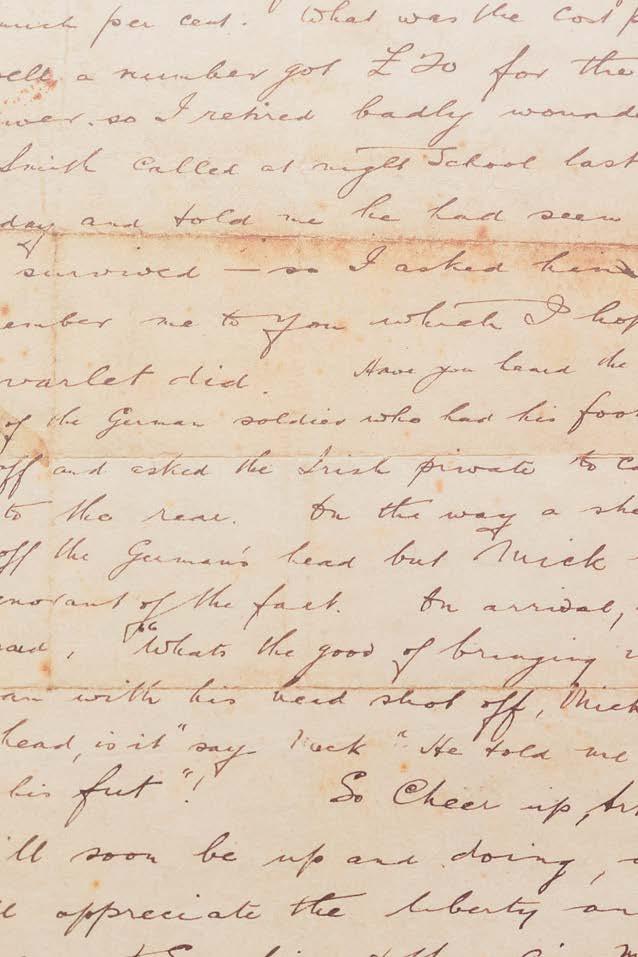 much per cent. What was the cost p
well a number got £20 for the
wer. so I retired badly wound
Smith called at night School last
day and told me he had seen
survived — so I asked him
ember me to you which I hop
varlet did. Have you heard the
of the German soldier who had his foo
off and asked the Irish private to ca
to the rear. On the way a she
off the German's head but Mick
gnorant of the fact. On arrival,
said, "Whats the good of bringing
an with his head shot off, Mick
head, is it" say Mick "He told me
his fut"! So Cheer up,
'll soon be up and doing,
appreciate the liberty an